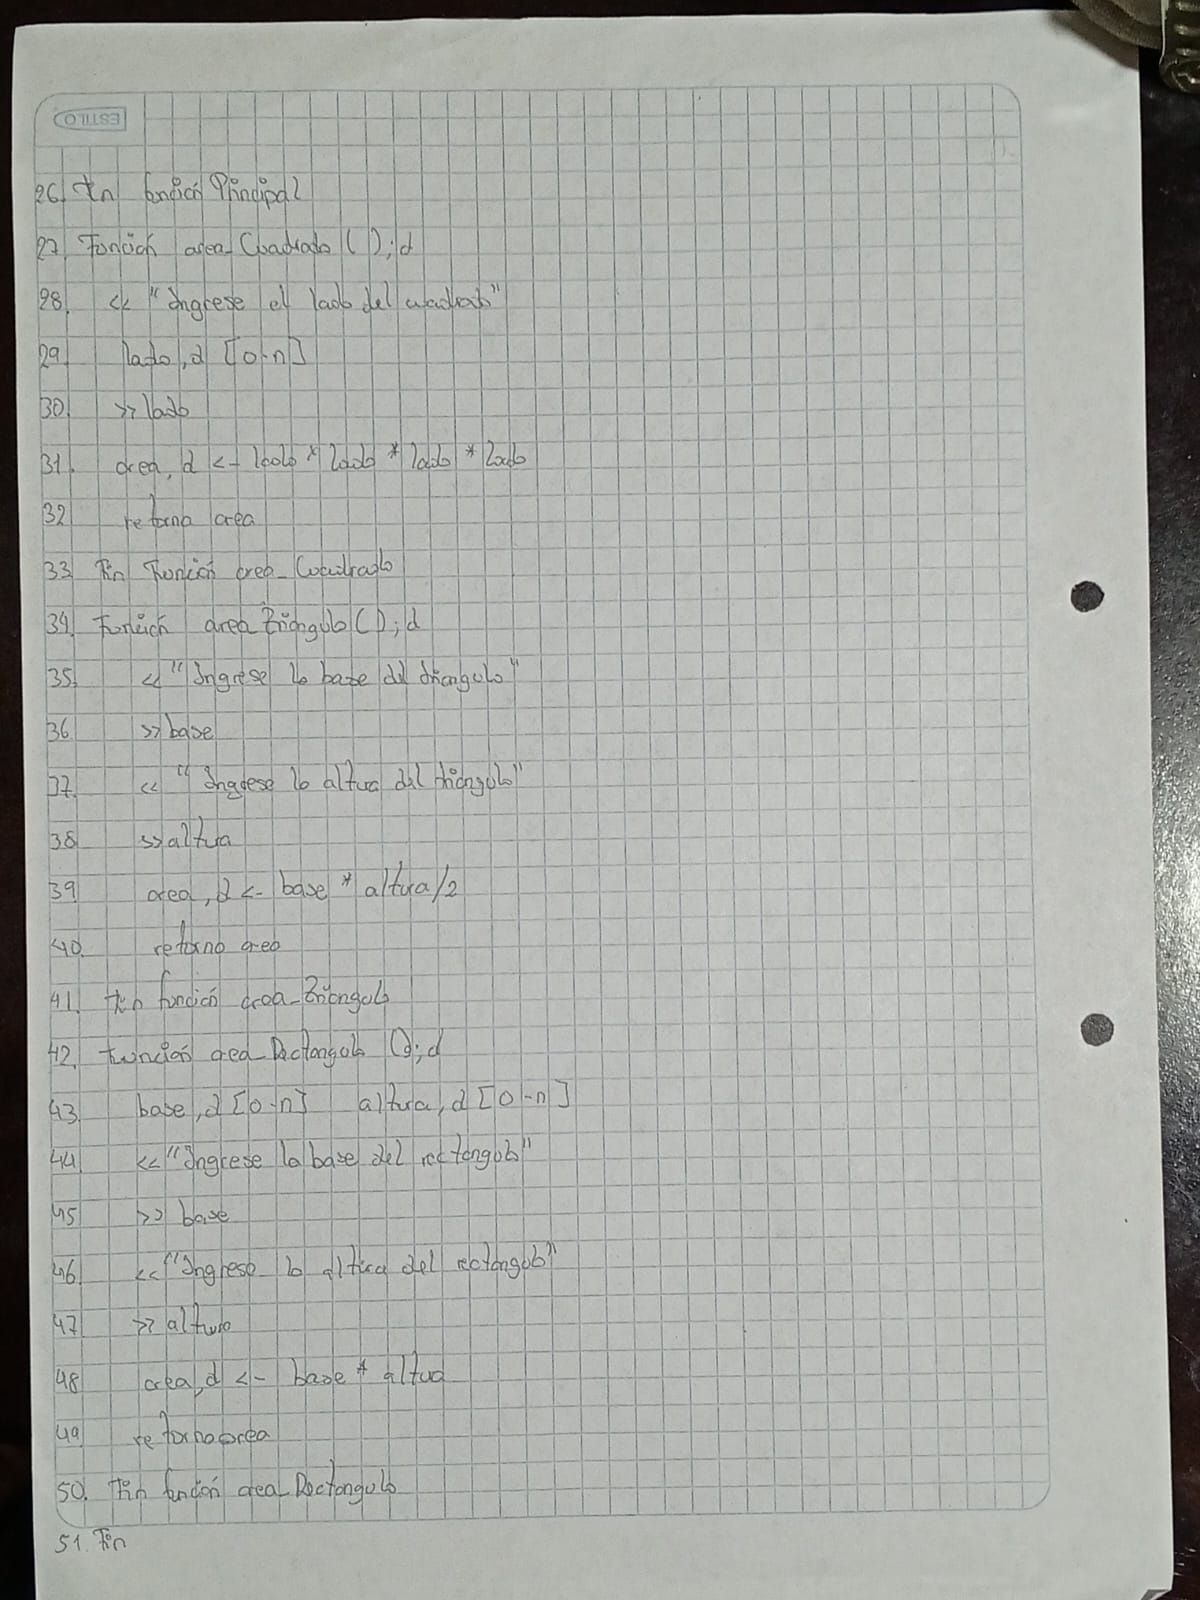 ESTILO
26. Fin función Principal
27. Función area_Cuadrado ( );d
28. << "Ingrese el lado del cuadrado"
29. lado,d [0-n]
30. >> lado
31. area, d <- lado * lado * lado * lado
32. retorno area
33. Fin Función area_Cuadrado
34. Función area_Triángulo ( );d
35. << "Ingrese la base del triangulo"
36. >> base
37. << "Ingrese la altura del triángulo"
38. >> altura
39. area, d <- base * altura/2
40. retorno area
41. Fin función area_Triángulo
42. Función area_Rectangulo ( );d
43. base, d [0-n] altura, d [0-n]
44. << "Ingrese la base del rectángulo"
45. >> base
46. << "Ingrese la altura del rectángulo"
47. >> altura
48. area, d <- base * altura
49. retorno area
50. Fin función area_Rectangulo
51. Fin